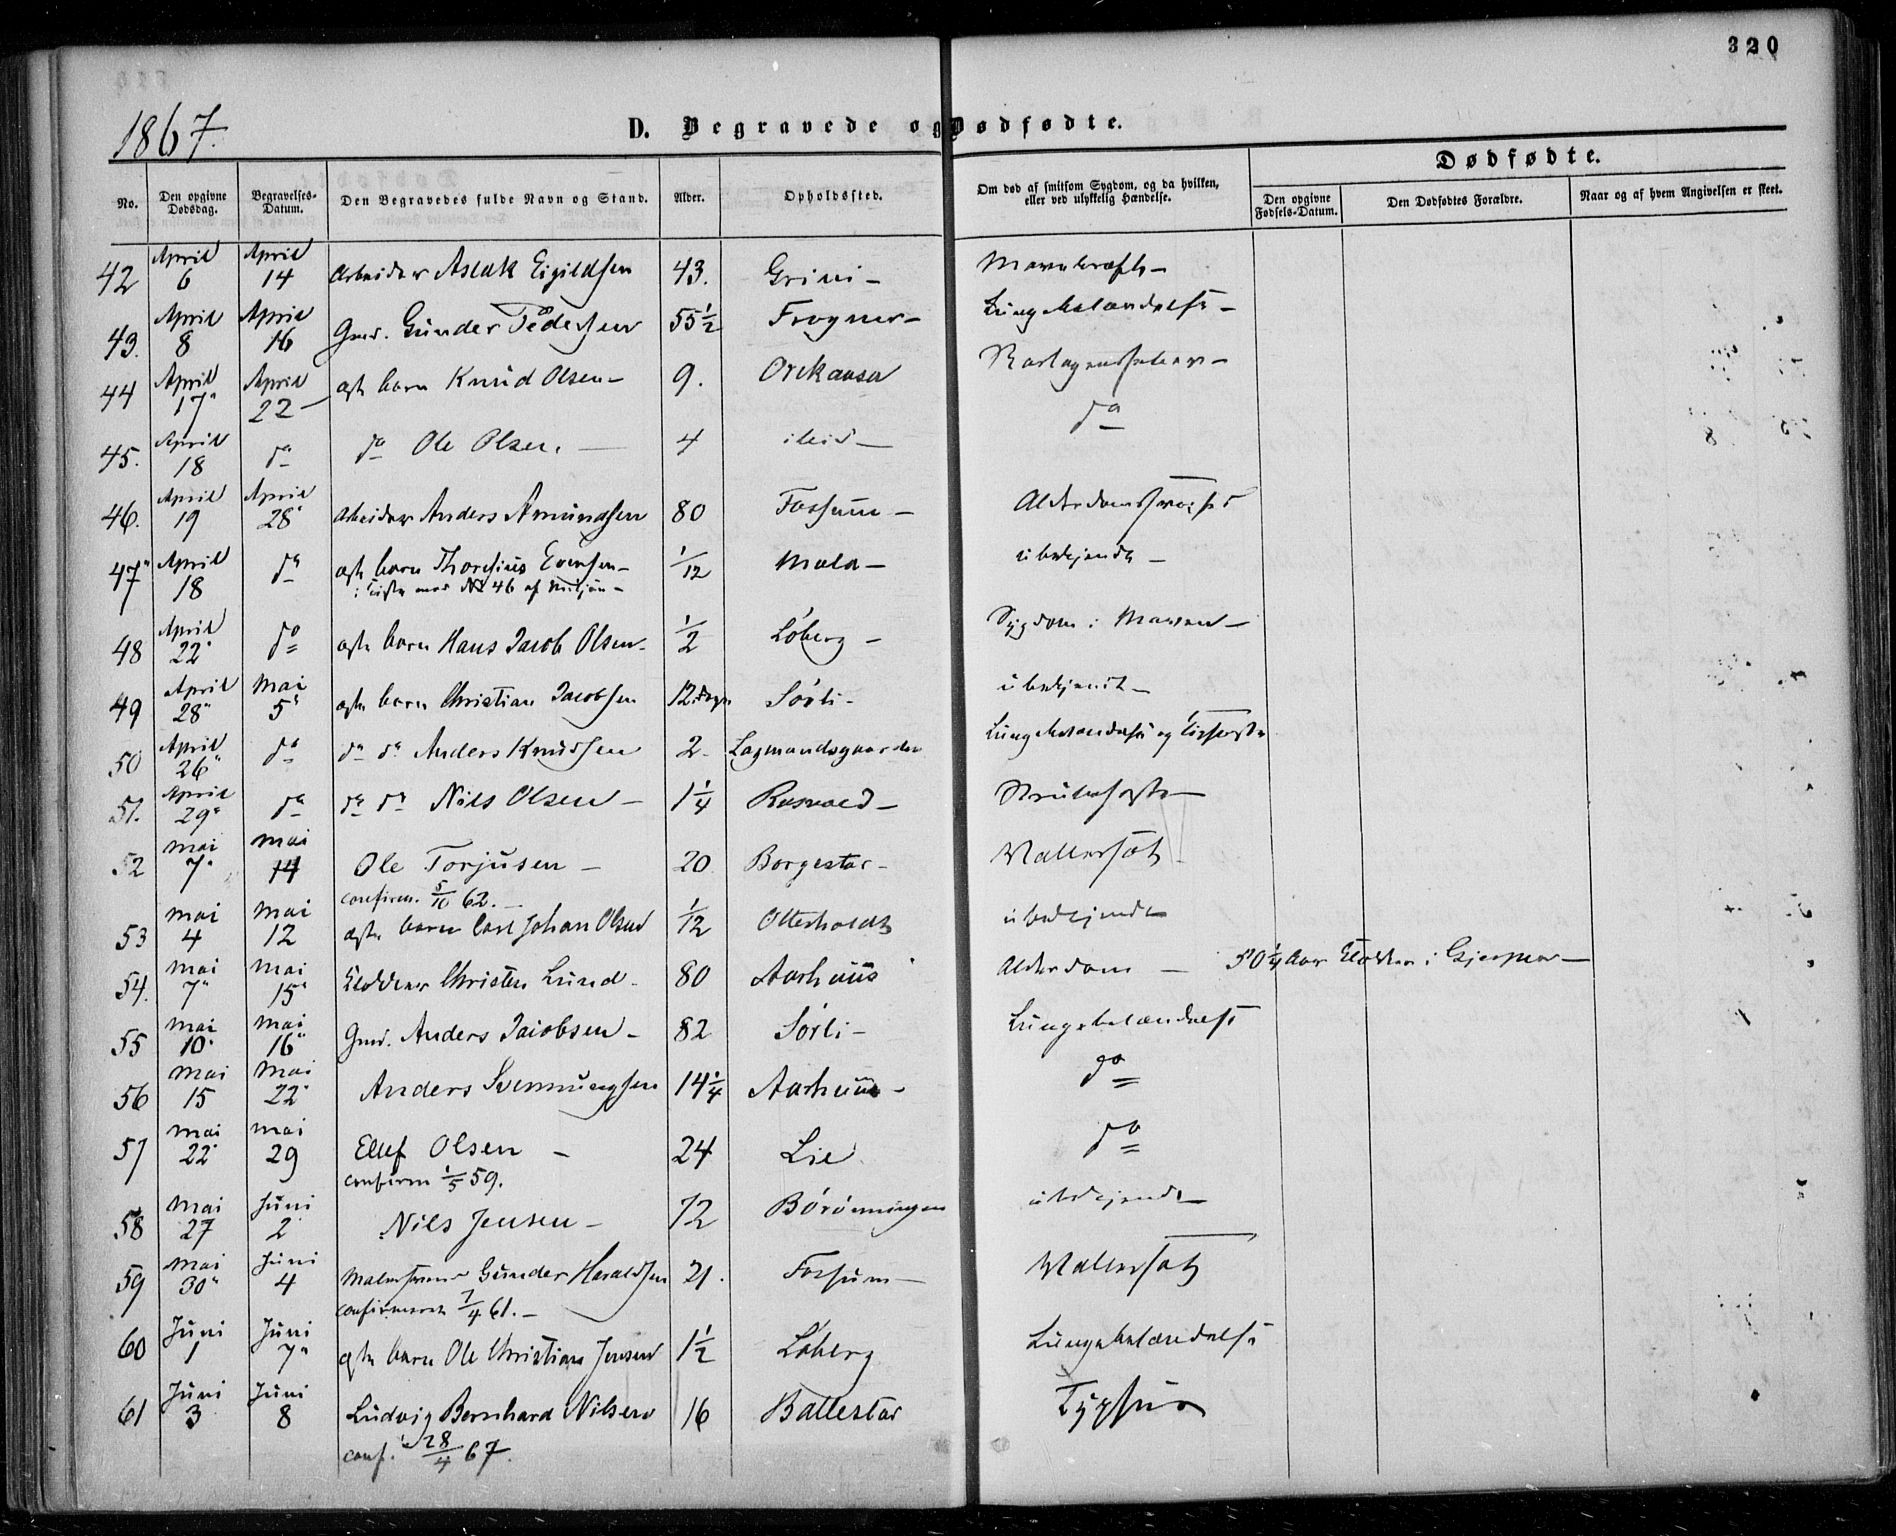 320
1867.
D. Begravede og Dødfødte.
Dødfødte.
No. Den opgivne Dødsdag. Begravelses-Datum. Den Begravedes fulde Navn og Stand. Alder. Opholdssted. Om død af smitsom Sygdom, og da hvilken, eller ved ulykkelig Hændelse. Den opgivne Fødsels-Datum. Den Dødfødtes Forældre. Naar og af hvem Angivelsen er skeet.
42 April 6 April 14 Arbeider Aslak Eigildsen 43. Grini -
43. April 8 April 16 Gmd. Gunder Pedersen 55 1/2 Frogner - Lungebetændelse -
44 April 17 April 22 - ægte barn Knud Olsen - 9. do
45. April 18 do do Ole Olsen. 4 ibid -
46. April 19 April 28 Arbeider Anders Amundsen 80 Fossum - Alderdomssvaghed
47 April 18 do ægte barn Evensen - 1/12 Mæla - ubekjendt -
i Kiste med No 46 af
48 April 22 do ægte barn Hans Jacob Olsen - 1/2 Löberg - Sygdom i Maven -
49 April 28 Mai 5 ægte barn Christian Jacobsen 12 Dage Sörli - ubekjendt -
50 April 26 do do do Anders Knudsen 2. Lagmandsgaarden Lungebetændelse og
51. April 29 do do do Nils Olsen - 1 1/4 Rosvald - Strubehoste -
52 Mai 7 Mai 14 Ole Torjusen - 20 Borgestad - Vattersot -
confirm. 5/10 62. -
53 Mai 4 Mai 12 ægte barn Carl Johan Olsen 1/12 Otterholdt ubekjendt
54. Mai 7 Mai 15 Klokker Christen Lund - 80 Aarhuus Alderdom - 50 1/4 Aar Klokker i Gjerpen -
55 Mai 10 Mai 16 Gmd. Anders Jacobsen - 82 Sörli - Lungebetændelse
56 Mai 15 Mai 22 Anders Svennungsen 14 1/4 Aarhuus - do
57 Mai 22 Mai 29 Ellef Olsen - 24 Lie do
confirm 1/5 59.
58 Mai 27 Juni 2 Nils Jensen - 72 Börönningen ubekjendt
59 Mai 30 Juni 4 Gunder Haraldsen 21. Fossum - Vattersot
confirmeret 7/4 61. -
60 Juni 1 Juni 7 ægte barn Ole Christian Jensen 1 1/2 Löberg Lungebetændelse
61 Juni 3 Juni 8 Ludvig Bernhard Nilsen 16 Ballestad Typhus
conf. 28/4 67.